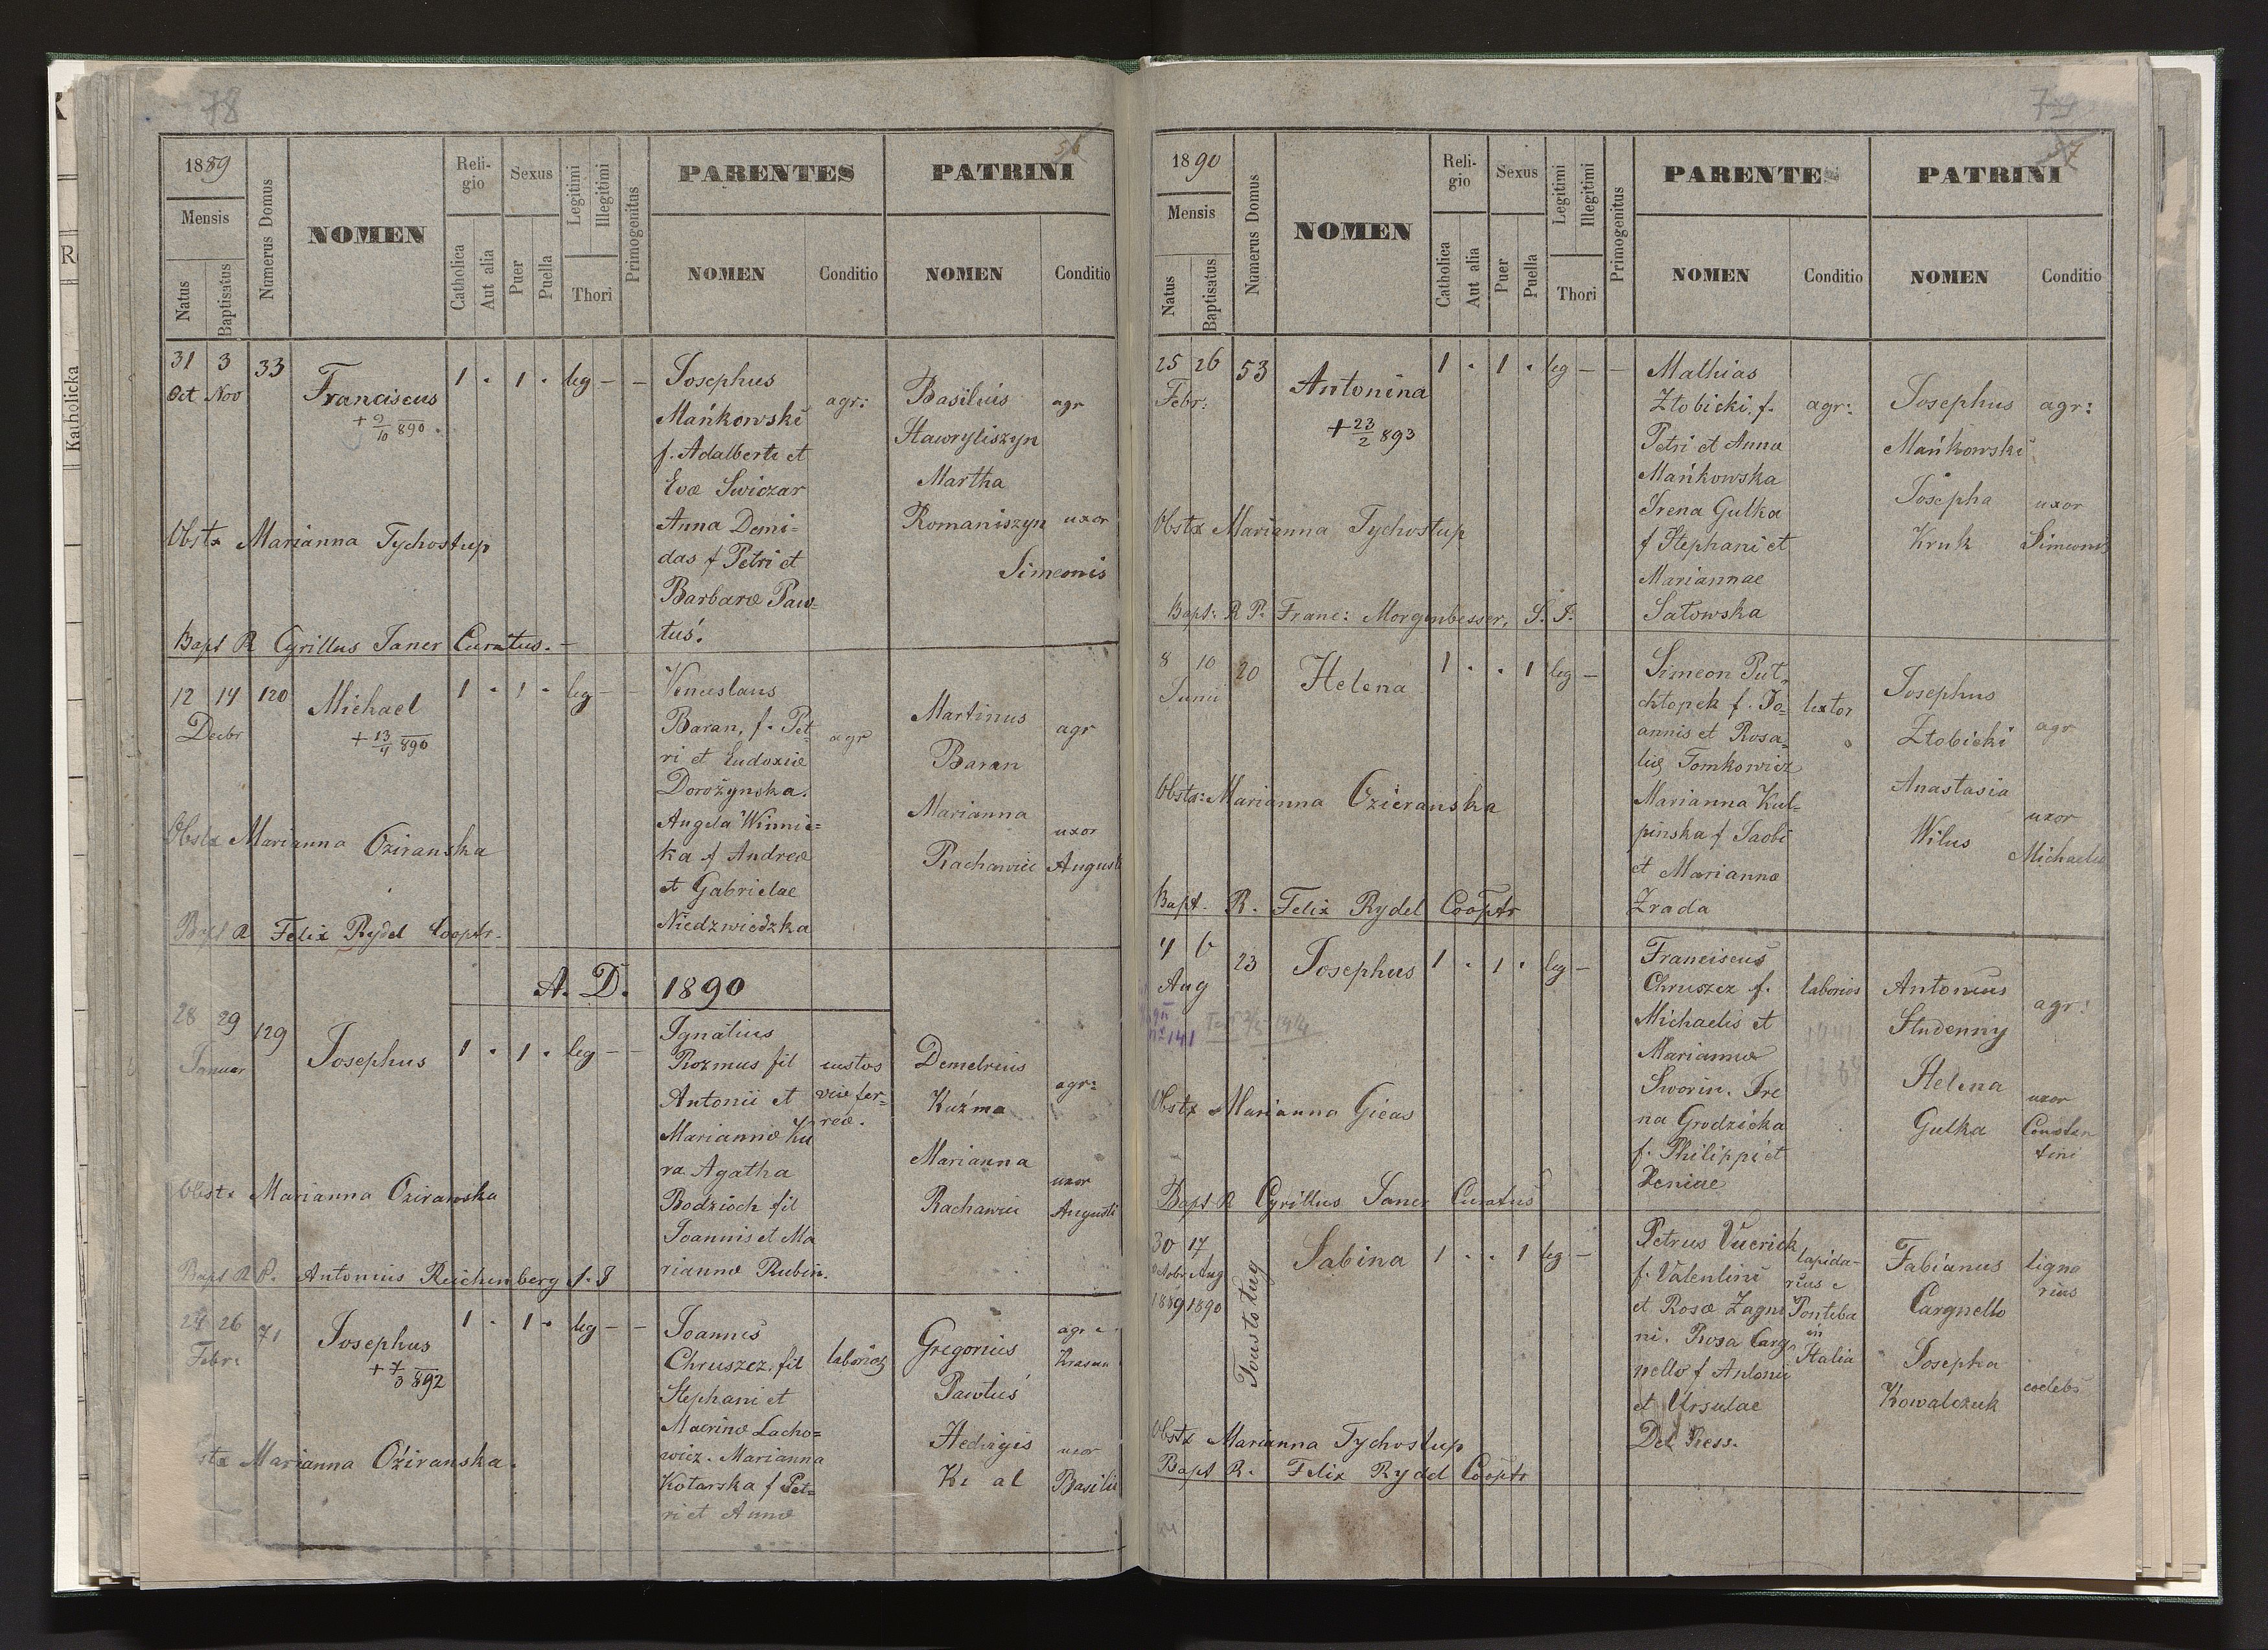 78
56
1889
Mensis
Natus
Baptisatus
Numerus Domus
NOMEN
Religio
Catholica
Aut alia
Sexus
Puer
Puella
Legitimi
Illegitimi
Thori
Primogenitus
PARENTES
NOMEN
Conditio
PATRINI
NOMEN
Conditio
31 3 33 Franciscus 1 · 1 · leg — — Josephus
Oct Nov
+ 9/10 890.
Mańkowski agr:
f. Adalberti et
Evæ Swiczar
Anna Demi-
das f Petri et
Barbaræ Paw-
tus'.
Basilius agr
Hawryliszyn
Martha
Romaniszyn uxor
Simeonis
Obstx Marianna Tychostup
Bapt R Cyrillus Janer Curatus. —
12 14 120 Michael 1 · 1 · leg — — Venceslaus
Decbr
+ 13/4 890
Baran, f. Pet- agr
ri et Eudoxiæ
Dorożynska.
Angela Winnic=
ka f Andreæ
et Gabrielae
Niedzwiedzka
Martinus agr
Baran
Marianna uxor
Rachawiec Augusti
Obstx Marianna Oziranska
Bapt R Felix Rydel Cooptr.
A. D. 1890
28 29 129 Josephus 1 · 1 · leg — — Ignatius
Januar
Rozmus fil custos
Antonii et viæ fer-
Mariannæ Ku reæ.
ra Agatha
Bodzioch fil
Joannis et Ma
riannæ Rubin.
Demetrius agr:
Kuźma
Marianna uxor
Rachawiec Augusti
Obstx Marianna Oziranska
Bapt R P. Antonius Reichenberg S. J
24 26 71 Josephus 1 · 1 · leg — — Joannes
Febr:
+ 7/3 892
Chruszcz, fil laborios
Stephani et
Macrinæ Lacho=
wicz. Marianna
Kotarska f Pet=
ri et Annæ
Gregorius agr
Pawtus'
Hedvigis uxor
Basilii
Marianna Oziranska.
79
57
1890
Mensis
Natus
Baptisatus
Numerus Domus
NOMEN
Religio
Catholica
Aut alia
Sexus
Puer
Puella
Legitimi
Illegitimi
Thori
Primogenitus
PARENTE
NOMEN
Conditio
PATRINI
NOMEN
Conditio
25 26 53 Antonina 1 · 1 · leg — — Mathias
Febr:
+ 23/2 893
Ztobicki, f. agr:
Petri et Anna
Mańkowska
Irena Gulka
f Stephani et
Mariannae
Satowska
Josephus agr:
Mańkowski
Josepha uxor
Kruk Simeonis
Obstx Marianna Tychostup
Bapt: R P. Franc: Morgenbesser, S. J.
8 10 20 Helena 1 · · 1 leg — Simeon Put-
Junii
chtopek f. Jo= textor
annis et Rosa=
liæ Tomkowicz
Marianna Kul-
pinska f Jacobi
et Mariannæ
Zrada
Josephus
Ztobicki agr
Anastasia uxor
Wilus Michaelis
Obstx: Marianna Ozieranska
Bapt. R. Felix Rydel Cooptr
4 6 23 Josephus 1 · 1 · leg — Franciscus
Aug
Chruszcz f. laborios
Michaelis et
Mariannæ
Sworin. Ire
na Grodzicka
f. Philippi et
Xeniae
Antonius agr:
Studenny
Helena uxor
Gulka Constan
tini
Obstx Marianna Gieas
Bapt R Cyrillus Janer Curatus
30 17 Sabina 1 · · 1 leg — Petrus Vuerich
Octobr Aug
1889 1890
Toustotug
f. Valentini lapida-
et Rosæ Zagni rius e
ni. Rosa Carg Ponteba
nello f Antonii in Italia
et Ursulae
Del Fess.
Fabianus ligna
rius
Cargnello
Josepha
Kowalczuk coelebs
Obstx Marianna Tychostup
Bapt R. Felix Rydel Cooptr